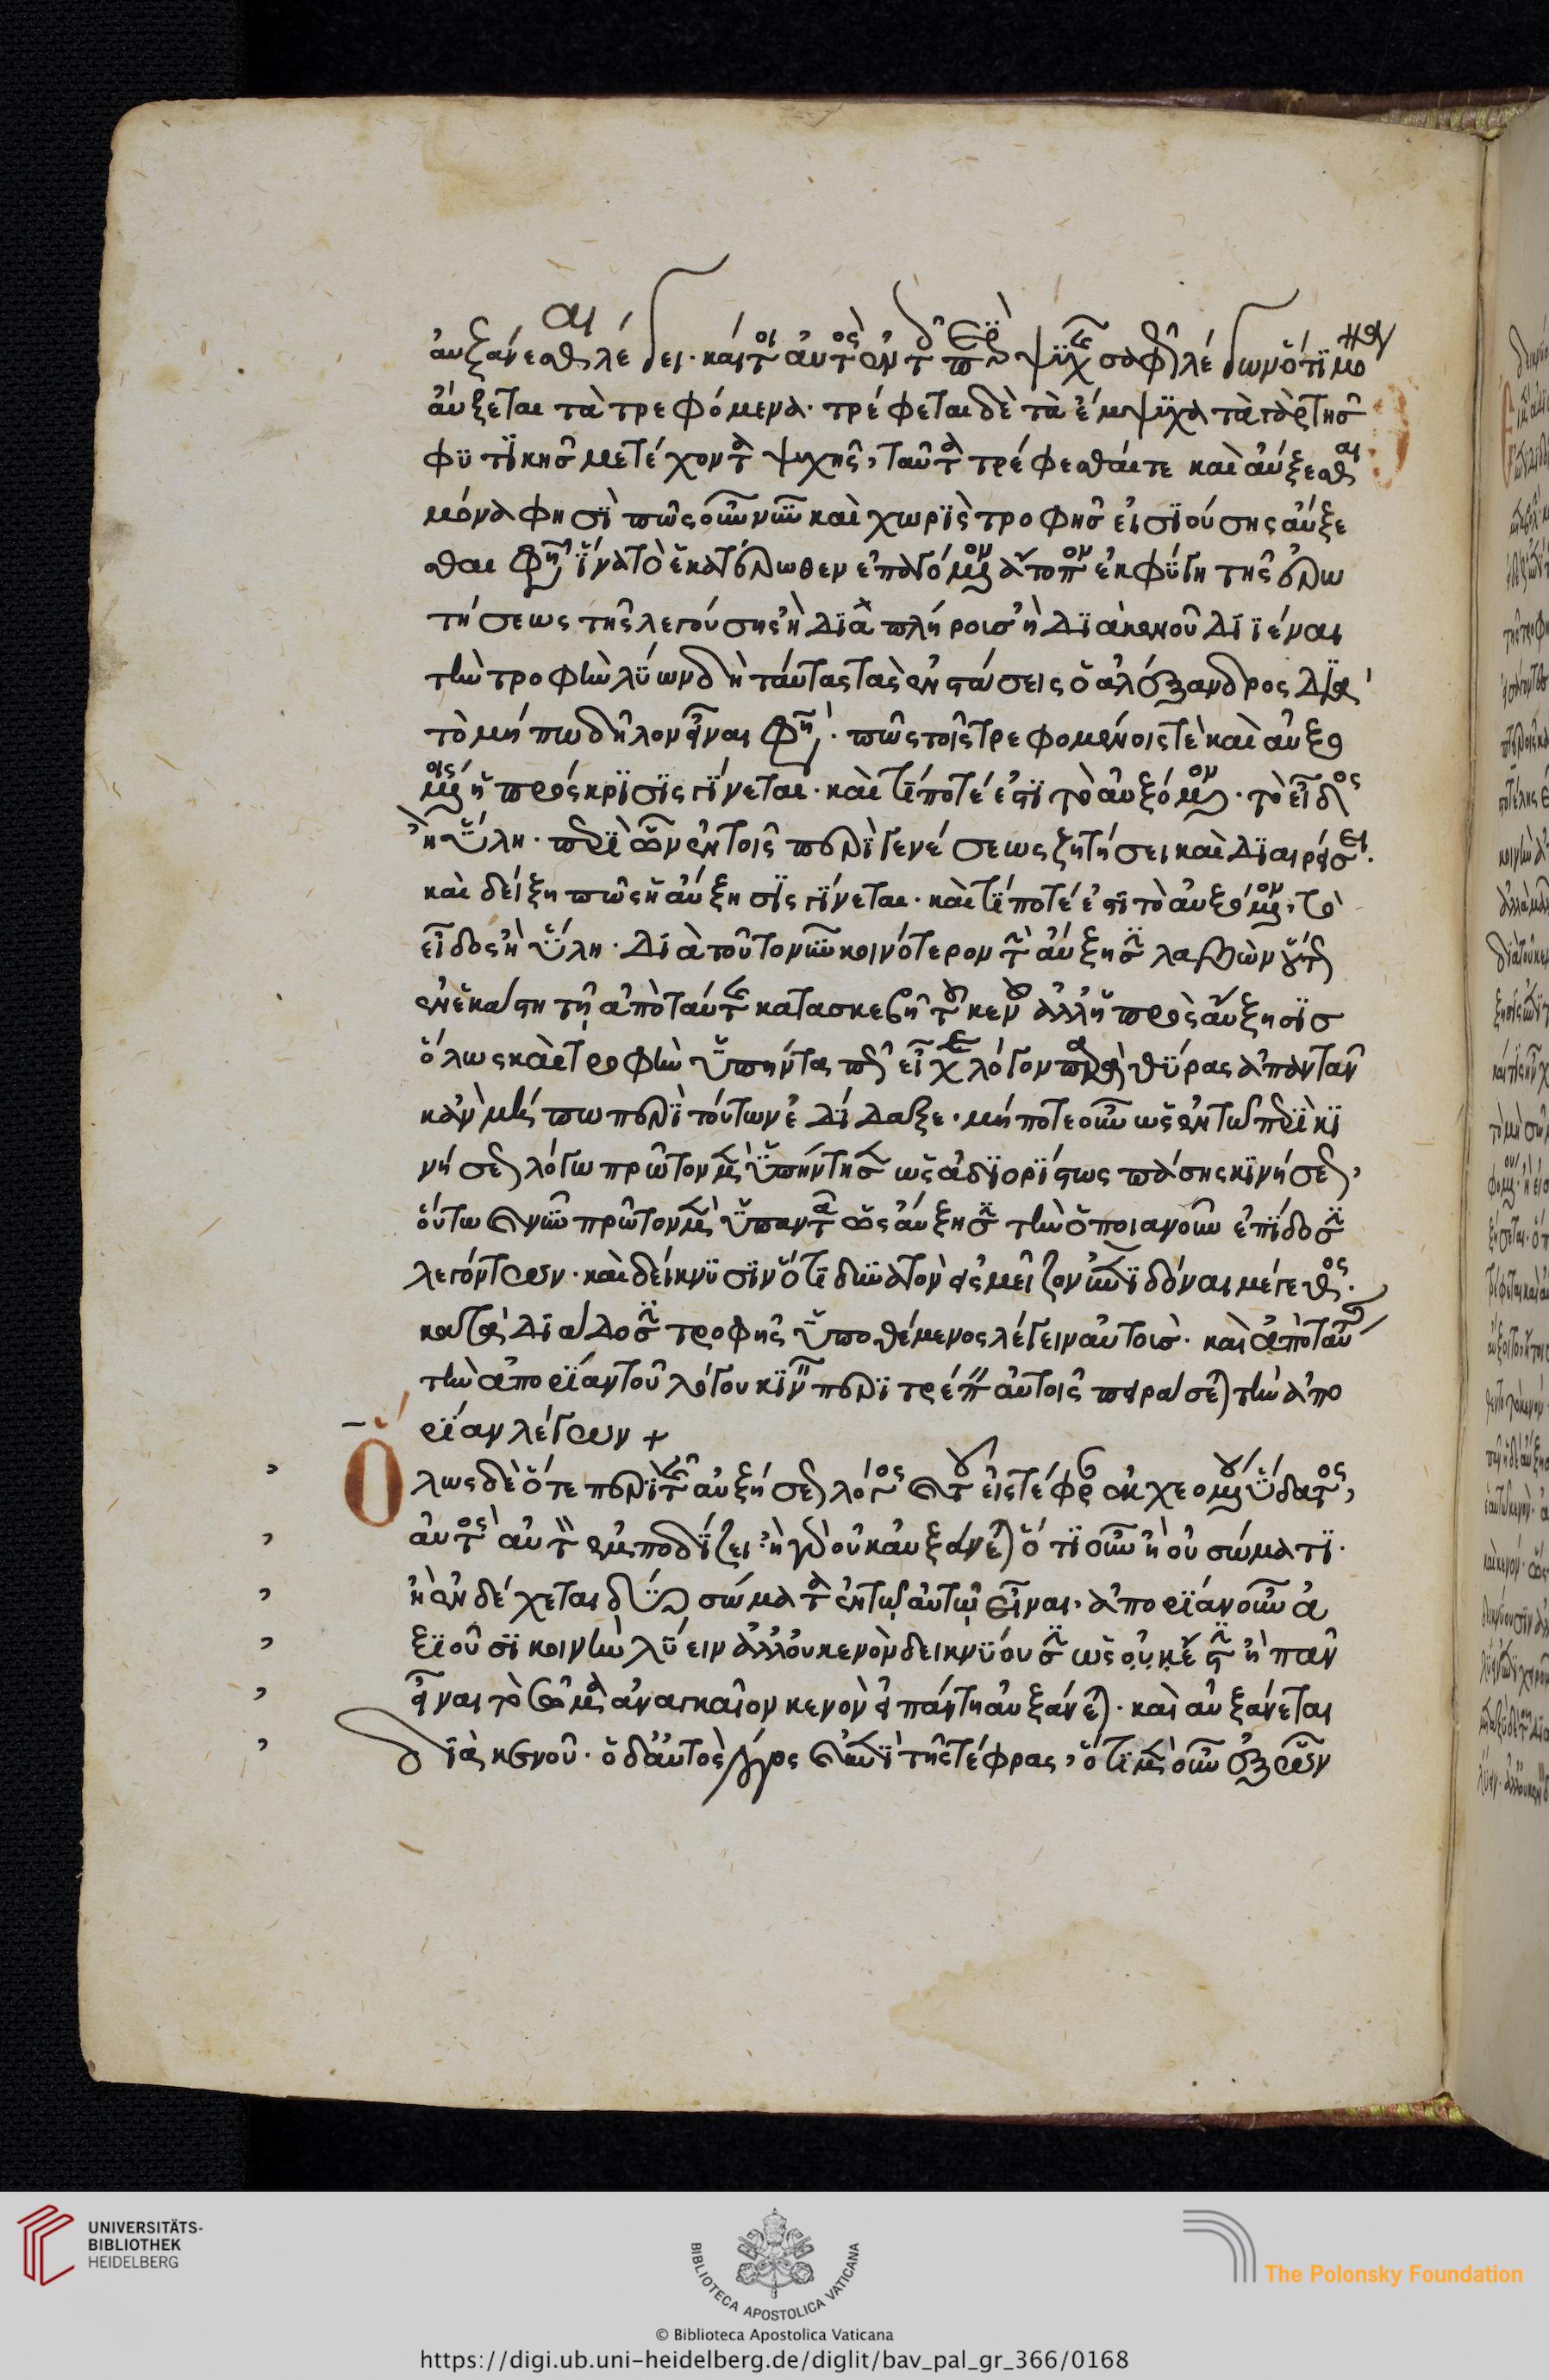 αὐξάνεσθαι λέγει. καίτοι αὐτὸς ἐν τ π ψυχ σαφ λέγων ὅτι μο
αὔξεται τὰ τρεφόμενα. τρέφεται δὲ τὰ ἔμψυχα τὰ γὰρ τῆς
φυτικῆς μετέχοντα ψυχῆς, ταῦτα τρέφεσθαί τε καὶ αὔξεσθαι
μόνα φησὶ πῶς οὖν νῦν καὶ χωρὶς τροφῆς εἰσιούσης αὔξε
σθαι φη ἵνα τὸ ἑκατέρωθεν ἐπαγόμενον ἄτοπον ἐκφύγη τῆς ἐρω
τήσεως τῆς λεγούσης ἢ διὰ πλήροις ἢ διὰ κενοῦ διϊέναι
τὴν τροφὴν λύων δὴ ταύτας τὰς ἐνστάσεις ὁ ἀλέξανδρος διὰ
τὸ μήπω δῆλον εἶναι φη. πῶς τοῖς τρεφομένοις τὲ καὶ αὐξο
μένοις ἡ πρόσκρισις γίνεται. καὶ τί ποτέ ἐστι τὸ αὐξόμενον. τὸ εἶδος
ἢ ὕλη. περὶ ὧν ἐν τοῖς περὶ γενέσεως ζητήσει καὶ διαιρήσει.
καὶ δείξη πῶς ἡ αὔξησις γίνεται. καὶ τί ποτέ ἐστι τὸ αὐξόμενον, τὸ
εἶδος ἢ ὕλη. διὰ τοῦτο νῦν κοινότερον τ αὔξησ λαβὼν
ἐνεκα τῆ ἀπὸ ταύτ κατασκευῆ τοῦ κενοῦ ἀλλ πρὸς αὔξησις
ὅλως καὶ τροφὴν ὑπήντα περ εἶχε λόγον παρὰ θύρας ἀπαντᾶν
κἂν μήπω περὶ τούτων ἐδίδαξε. μήποτε οὖν ὡς ἐν τῶ περὶ κι
νήσεως λόγω πρῶτον μὲν ὑπήντησ ὡς ἀδιορίστως πάσης κινήσεως,
οὕτω νῦν πρῶτον μὲν ὑπαντᾶ ὡς αὔξησ τὴν ὁποιανοῦν ἐπίδοσ
λεγόντων. καὶ δείκνυσιν ὅτι δυνατὸν εἰς μεῖζον ἐπιδόναι μέγεθος.
κατὰ διάδοσ τροφῆς ὑποθέμενος λέγειν αὐτοῖς. καὶ ἀπὸ ταύτ
τὴν ἀπορίαν τοῦ λόγου κιν περιτρέπ αὐτοῖς πειρᾶσθαι τὴν ἀπο
ρίαν λέγων +
Ὅλως δὲ ὅτε περὶ τῆς αὐξήσεως λόγος τοῦ εἰς τέφρ ἐκχεομένου ὕδατος,
αὐτὸς αὑτ ἐμποδίζει. ἢ γὰρ οὐκ αὐξάνεται ὁτιοῦν ἢ οὐ σώματι.
ἢ ἐνδέχεται δύο σώματα ἐν τῶ αὐτῶ εἶναι. ἀπορίαν οὖν ἀ
ξιοῦσι κοινὴν λύειν ἀλλ' οὐ κενὸν δεικνύουσ ὡς οὐκ ἔστ ἢ πᾶν
εἶναι τὸ σῶμα ἀναγκαῖον κενὸν εἰ πάντη αὐξάνεται. καὶ αὐξάνεται
διὰ κενοῦ. ὁ δ' αὐτὸς λόγος καὶ ἐπὶ τῆς τέφρας, ὅτι μὲν οὖν ἐξ ὧν
UNIVERSITÄTS-
BIBLIOTHEK
HEIDELBERG
BIBLIOTECA APOSTOLICA VATICANA
The Polonsky Foundation
© Biblioteca Apostolica Vaticana
https://digi.ub.uni-heidelberg.de/diglit/bav_pal_gr_366/0168